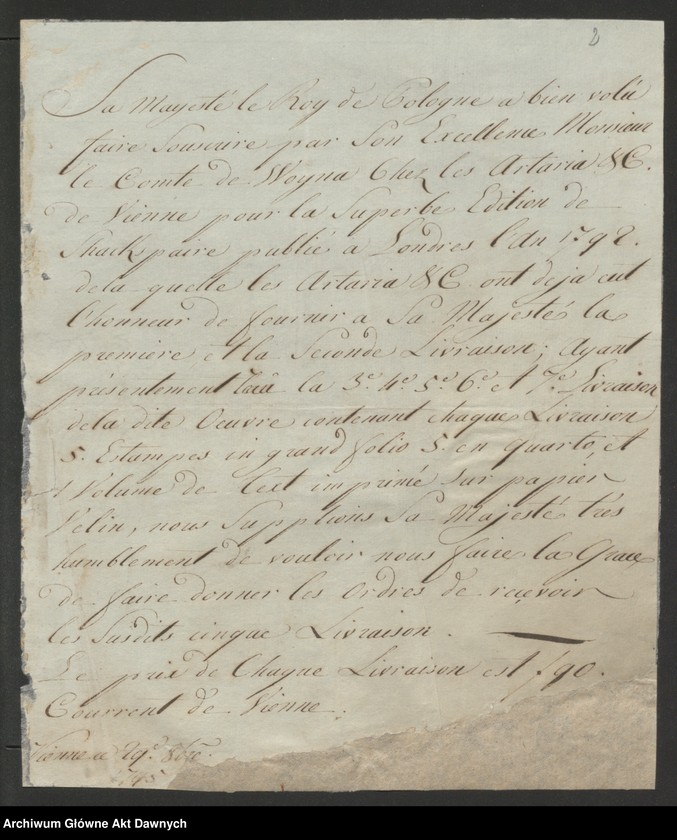 2
Sa Mayesté le Roy de Pologne a bien volû
faire Souscrire par Son Excellence Monsieur
le Comte de Woyna Chez les Artaria &C.
de Vienne pour la Superbe Edition de
Shackspaire publié a Londres l'An 1792.
dela quelle les Artaria &C. ont deja eut
l'honneur de fournir a Sa Majesté la
premiere et la Seconde Livraison; Ayant
présentement la 3e. 4e. 5e. 6e. et 7e. Livraison
dela dite Oeuvre contenant chaque Livraison
5. Estampes in grand folio 5. en quarto, et
1 Volume de Text imprimé sur papier
Velin, nous Supplions Sa Majesté trés
humblement de vouloir nous faire la Grace
de faire donner les Ordres de reçevoir
les Susdits cinque Livraison.
Le prix de Chaque Livraison est f 90.
Courrent de Vienne.
Vienne a 29e. 8bre.
1795
Archiwum Główne Akt Dawnych